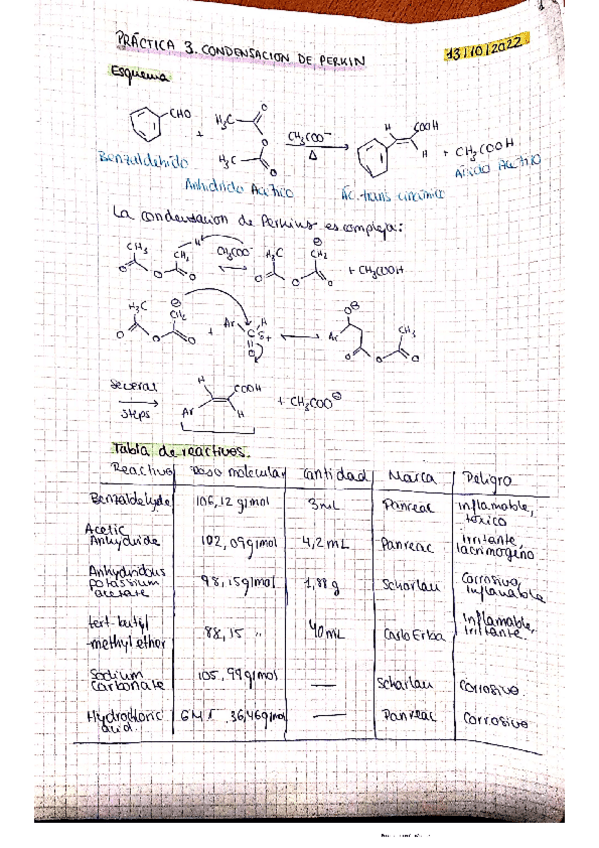 PRÁCTICA 3. CONDENSACION DE PERKIN
13/10/2022
Esquema
CHO + H₃C O O H₃C O CH₃COO⁻ Δ H COOH H + CH₃COOH
Benzaldehido
Anhidrido Acético
Ác. trans cinámico
Ácido Acético
La condensacion de Perkins es compleja:
CH₃ H CH₂ O O O CH₃COO⁻ H₃C ⊖ CH₂ O O O + CH₃COOH
H₃C ⊖ CH₂ O O O + Ar C H δ+ O O⊖ Ar O O CH₃ O
several steps H COOH Ar H + CH₃COO⊖
Tabla de reactivos.
Reactivo Peso molecular Cantidad Marca Peligro
Benzaldehyde 106,12 g/mol 3mL Panreac inflamable, tóxico
Acetic Anhydride 102,09g/mol 4,2mL Panreac Irritante lacrimogeno
Anhydridous potassium acetate 98,15g/mol 1,88g Scharlau Corrosivo, inflamable
tert-butyl methyl ether 88,15 " 40mL Carlo Erba Inflamable, irritante.
Sodium carbonate 105,99g/mol — Scharlau Corrosivo
Hydrochloric acid. 36,46g/mol — Panreac Corrosivo